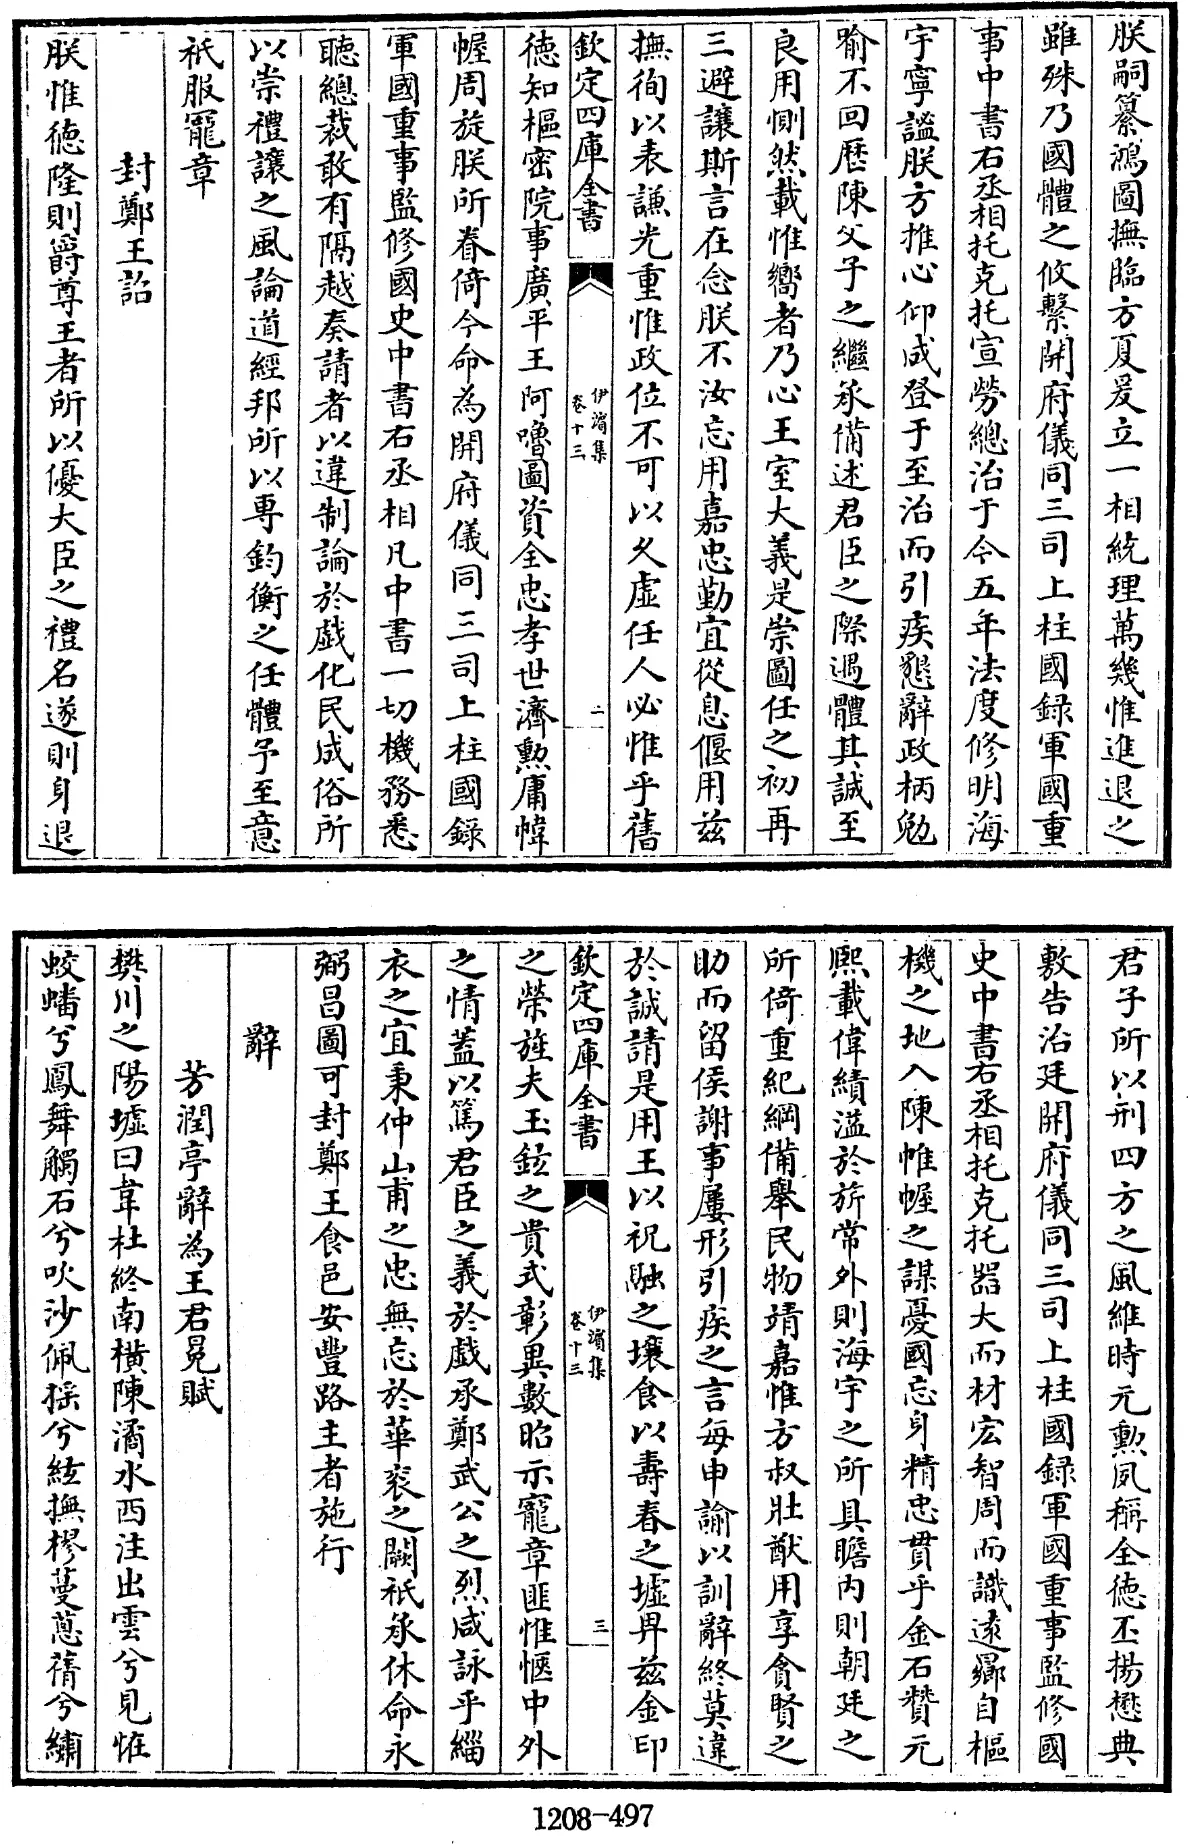 朕嗣纂鴻圖撫臨方夏爰立一相統理萬幾惟進退之
雖殊乃國體之攸繫開府儀同三司上柱國録軍國重
事中書右丞相托克托宣勞總治于今五年法度修明海
宇寧謐朕方推心仰成登于至治而引疾懇辭政柄勉
喻不回歴陳父子之繼承備述君臣之際遇體其誠至
良用惻然載惟嚮者乃心王室大義是崇圖任之初再
三避讓斯言在念朕不汝忘用嘉忠勤宜從息偃用兹
撫徇以表謙光重惟政位不可以久虛任人必惟乎舊
欽定四庫全書
伊濱集
卷十三
二
徳知樞密院事廣平王阿嚕圖資全忠孝世濟勲庸幃
幄周旋朕所眷倚今命為開府儀同三司上柱國録
軍國重事監修國史中書右丞相凡中書一切機務悉
聽總裁敢有隔越奏請者以違制論於戲化民成俗所
以崇禮讓之風論道經邦所以專鈞衡之任體予至意
祇服寵章
封鄭王詔
朕惟徳隆則爵尊王者所以優大臣之禮名遂則身退
君子所以刑四方之風維時元勲夙稱全徳丕揚懋典
敷告治廷開府儀同三司上柱國録軍國重事監修國
史中書右丞相托克托器大而材宏智周而識逺鄉自樞
機之地入陳帷幄之謀憂國忘身精忠貫乎金石贊元
熙載偉績溢於旂常外則海宇之所具瞻内則朝廷之
所倚重紀綱備舉民物靖嘉惟方叔壯猷用享貪賢之
助而留侯謝事屢形引疾之言每申諭以訓辭終莫違
於誠請是用王以祝融之壤食以壽春之墟畀兹金印
欽定四庫全書
伊濱集
卷十三
三
之榮旌夫玉鉉之貴式彰異數昭示寵章匪惟愜中外
之情蓋以篤君臣之義於戲承鄭武公之烈咸詠乎緇
衣之宜秉仲山甫之忠無忘於華衮之闕祇承休命永
弼昌圖可封鄭王食邑安豐路主者施行
辭
芳潤亭辭為王君冕賦
樊川之陽墟曰韋杜終南横陳潏水西注出雲兮見惟
蛟蟠兮鳳舞觸石兮吹沙佩揺兮絃撫樛蔓蔥蒨兮繡
1208-497